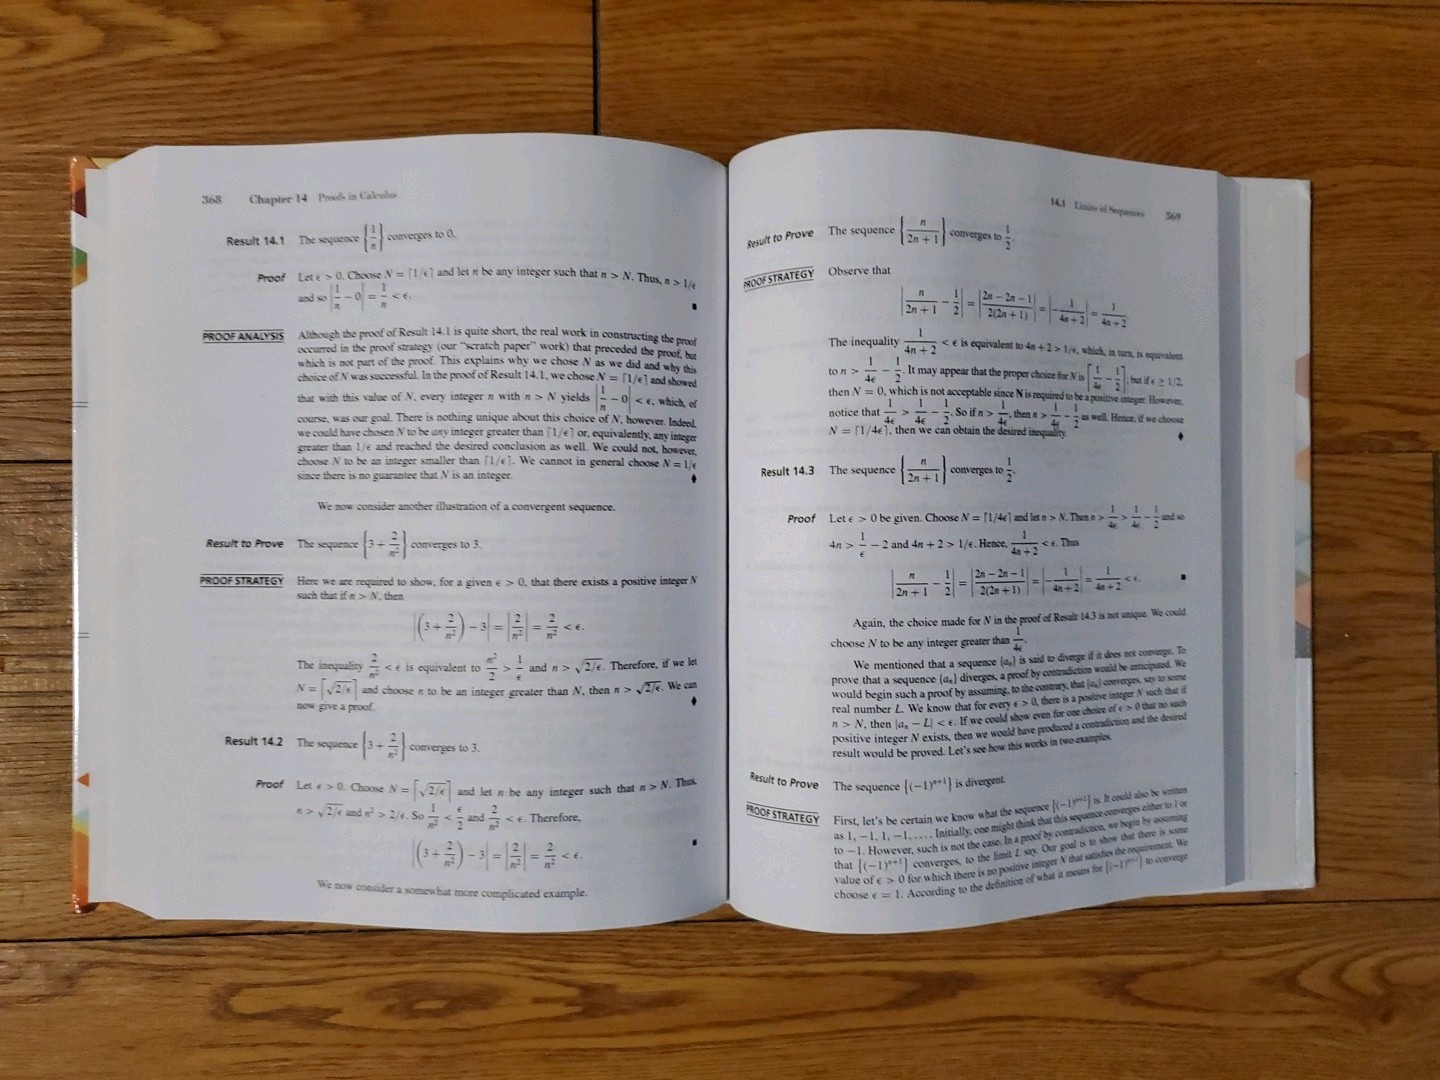 368 Chapter 14 Proofs in Calculus
Result 14.1 The sequence {1/n} converges to 0.
Proof Let ϵ > 0. Choose N = ⌈1/ϵ⌉ and let n be any integer such that n > N. Thus, n > 1/ϵ
and so |1/n − 0| = 1/n < ϵ. ■
PROOF ANALYSIS Although the proof of Result 14.1 is quite short, the real work in constructing the proof
occurred in the proof strategy (our "scratch paper" work) that preceded the proof, but
which is not part of the proof. This explains why we chose N as we did and why this
choice of N was successful. In the proof of Result 14.1, we chose N = ⌈1/ϵ⌉ and showed
that with this value of N, every integer n with n > N yields |1/n − 0| < ϵ, which, of
course, was our goal. There is nothing unique about this choice of N, however. Indeed,
we could have chosen N to be any integer greater than ⌈1/ϵ⌉ or, equivalently, any integer
greater than 1/ϵ and reached the desired conclusion as well. We could not, however,
choose N to be an integer smaller than ⌈1/ϵ⌉. We cannot in general choose N = 1/ϵ
since there is no guarantee that N is an integer. ♦
We now consider another illustration of a convergent sequence.
Result to Prove The sequence {3 + 2/n²} converges to 3.
PROOF STRATEGY Here we are required to show, for a given ϵ > 0, that there exists a positive integer N
such that if n > N, then
|(3 + 2/n²) − 3| = |2/n²| = 2/n² < ϵ.
The inequality 2/n² < ϵ is equivalent to n²/2 > 1/ϵ and n > √2/ϵ. Therefore, if we let
N = ⌈√2/ϵ⌉ and choose n to be an integer greater than N, then n > √2/ϵ. We can
now give a proof. ♦
Result 14.2 The sequence {3 + 2/n²} converges to 3.
Proof Let ϵ > 0. Choose N = ⌈√2/ϵ⌉ and let n be any integer such that n > N. Thus,
n > √2/ϵ and n² > 2/ϵ. So 1/n² < ϵ/2 and 2/n² < ϵ. Therefore,
|(3 + 2/n²) − 3| = |2/n²| = 2/n² < ϵ. ■
We now consider a somewhat more complicated example.
14.1 Limits of Sequences 369
Result to Prove The sequence {n/(2n + 1)} converges to 1/2.
PROOF STRATEGY Observe that
|n/(2n + 1) − 1/2| = |(2n − 2n − 1)/(2(2n + 1))| = |−1/(4n + 2)| = 1/(4n + 2).
The inequality 1/(4n + 2) < ϵ is equivalent to 4n + 2 > 1/ϵ, which, in turn, is equivalent
to n > 1/4ϵ − 1/2. It may appear that the proper choice for N is ⌈1/4ϵ − 1/2⌉, but if ϵ ≥ 1/2,
then N = 0, which is not acceptable since N is required to be a positive integer. However,
notice that 1/4ϵ > 1/4ϵ − 1/2. So if n > 1/4ϵ, then n > 1/4ϵ − 1/2 as well. Hence, if we choose
N = ⌈1/4ϵ⌉, then we can obtain the desired inequality. ♦
Result 14.3 The sequence {n/(2n + 1)} converges to 1/2.
Proof Let ϵ > 0 be given. Choose N = ⌈1/4ϵ⌉ and let n > N. Then n > 1/4ϵ > 1/4ϵ − 1/2 and so
4n > 1/ϵ − 2 and 4n + 2 > 1/ϵ. Hence, 1/(4n + 2) < ϵ. Thus
|n/(2n + 1) − 1/2| = |(2n − 2n − 1)/(2(2n + 1))| = |−1/(4n + 2)| = 1/(4n + 2) < ϵ. ■
Again, the choice made for N in the proof of Result 14.3 is not unique. We could
choose N to be any integer greater than 1/4ϵ.
We mentioned that a sequence {aₙ} is said to diverge if it does not converge. To
prove that a sequence {aₙ} diverges, a proof by contradiction would be anticipated. We
would begin such a proof by assuming, to the contrary, that {aₙ} converges, say to some
real number L. We know that for every ϵ > 0, there is a positive integer N such that if
n > N, then |aₙ − L| < ϵ. If we could show even for one choice of ϵ > 0 that no such
positive integer N exists, then we would have produced a contradiction and the desired
result would be proved. Let's see how this works in two examples.
Result to Prove The sequence {(−1)ⁿ⁺¹} is divergent.
PROOF STRATEGY First, let's be certain we know what the sequence {(−1)ⁿ⁺¹} is. It could also be written
as 1, −1, 1, −1, . . . . Initially, one might think that this sequence converges either to 1 or
to −1. However, such is not the case. In a proof by contradiction, we begin by assuming
that {(−1)ⁿ⁺¹} converges, to the limit L say. Our goal is to show that there is some
value of ϵ > 0 for which there is no positive integer N that satisfies the requirement. We
choose ϵ = 1. According to the definition of what it means for {(−1)ⁿ⁺¹} to converge